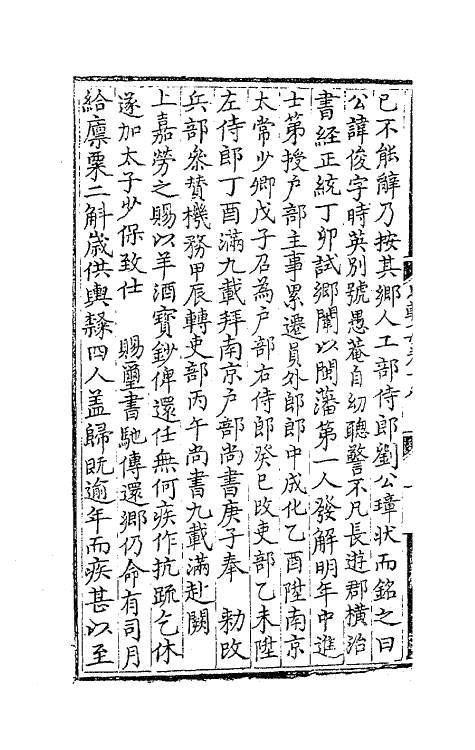 已不能辭乃按其鄉人工部侍郎劉公璋狀而銘之曰
公諱俊字時英別號愚菴自幼聰警不凡長遊郡橫治
書經正統丁卯試鄉闈以閩藩第一人發解明年中進
士第授户部主事累遷員外郎郎中成化乙酉陞南京
太常少卿戊子召為户部右侍郎癸巳改吏部乙未陞
左侍郎丁酉滿九載拜南京户部尚書庚子奉　勅改
兵部叅賛機務甲辰轉吏部丙午尚書九載滿赴闕
上嘉勞之賜以羊酒寶鈔俾還任無何疾作抗疏乞休
遂加太子少保致仕　賜璽書馳傳還鄉仍命有司月
給廪粟二斛歲供輿隸四人盖歸旣逾年而疾甚以至